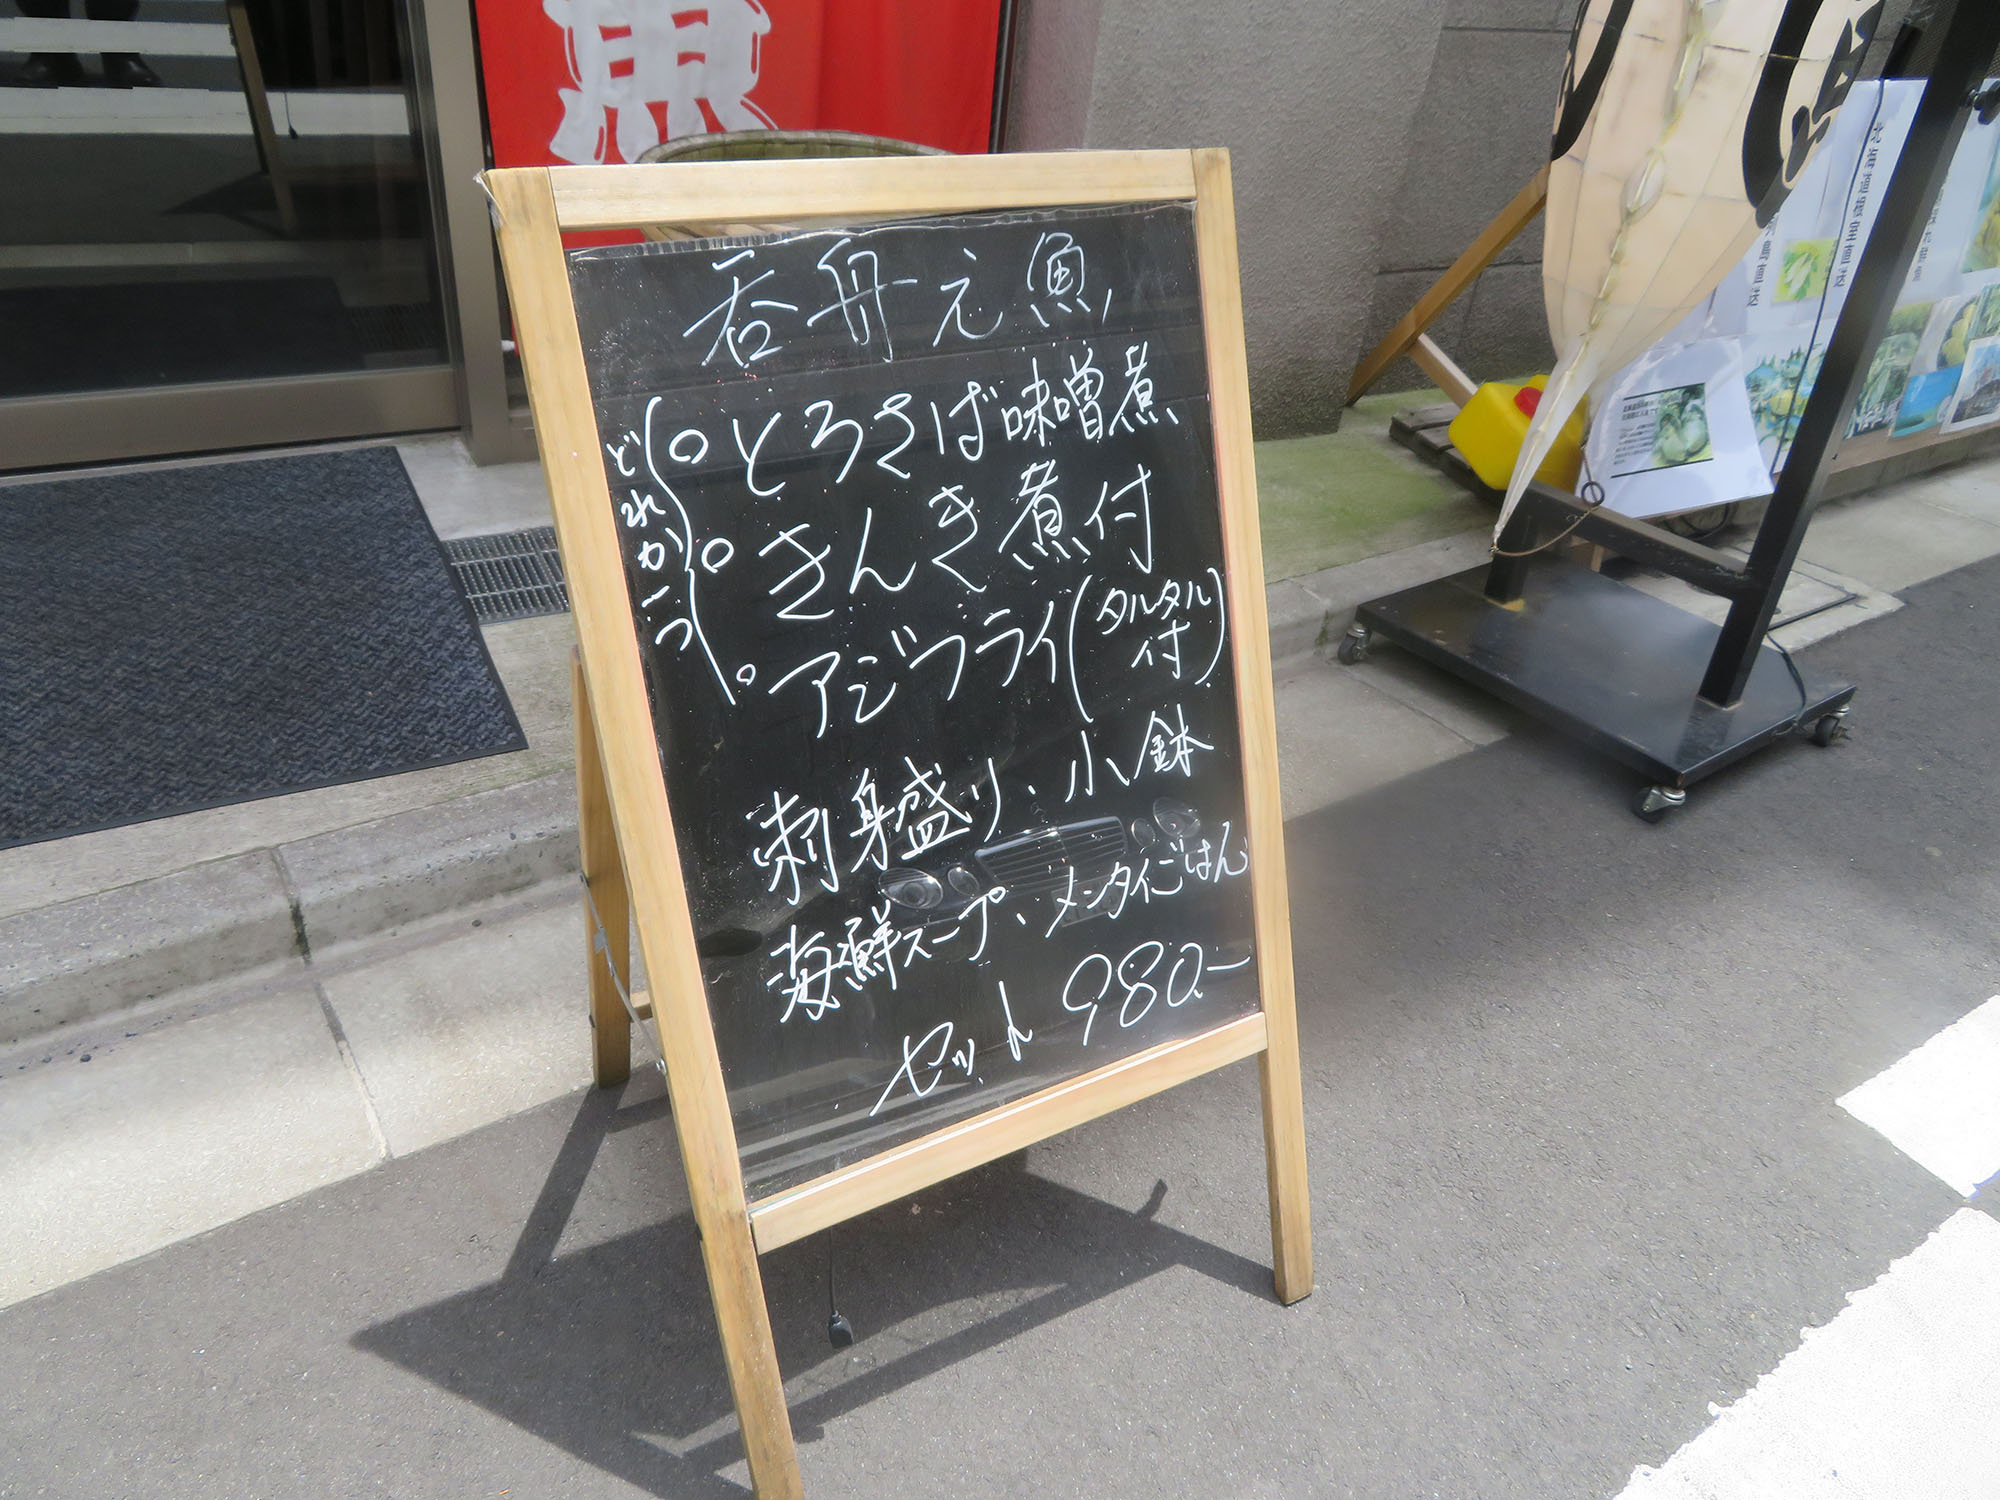 魚
呑舟之魚
どれか一つ
○とろさば味噌煮
○きんき煮付
○アジフライ(タルタル付)
刺身盛り、小鉢
海鮮スープ、メンタイごはん
セット 980.-